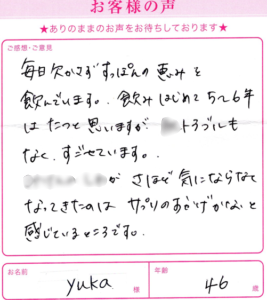 お客様の声
★ありのままのお声をお待ちしております★
ご感想・ご意見
毎日欠かさずすっぽんの恵みを
飲んでいます。飲みはじめて5〜6年
はたつと思いますが トラブルも
なく、すごせています。
が さほど気にならなく
なってきたのは サプリのおかげかなと
感じているところです。
お名前
yuka.
様
年齢
46
歳